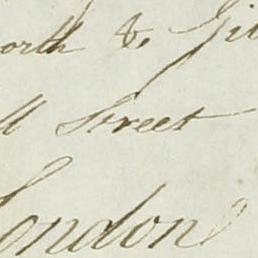 orth & Gil
ll Street
London